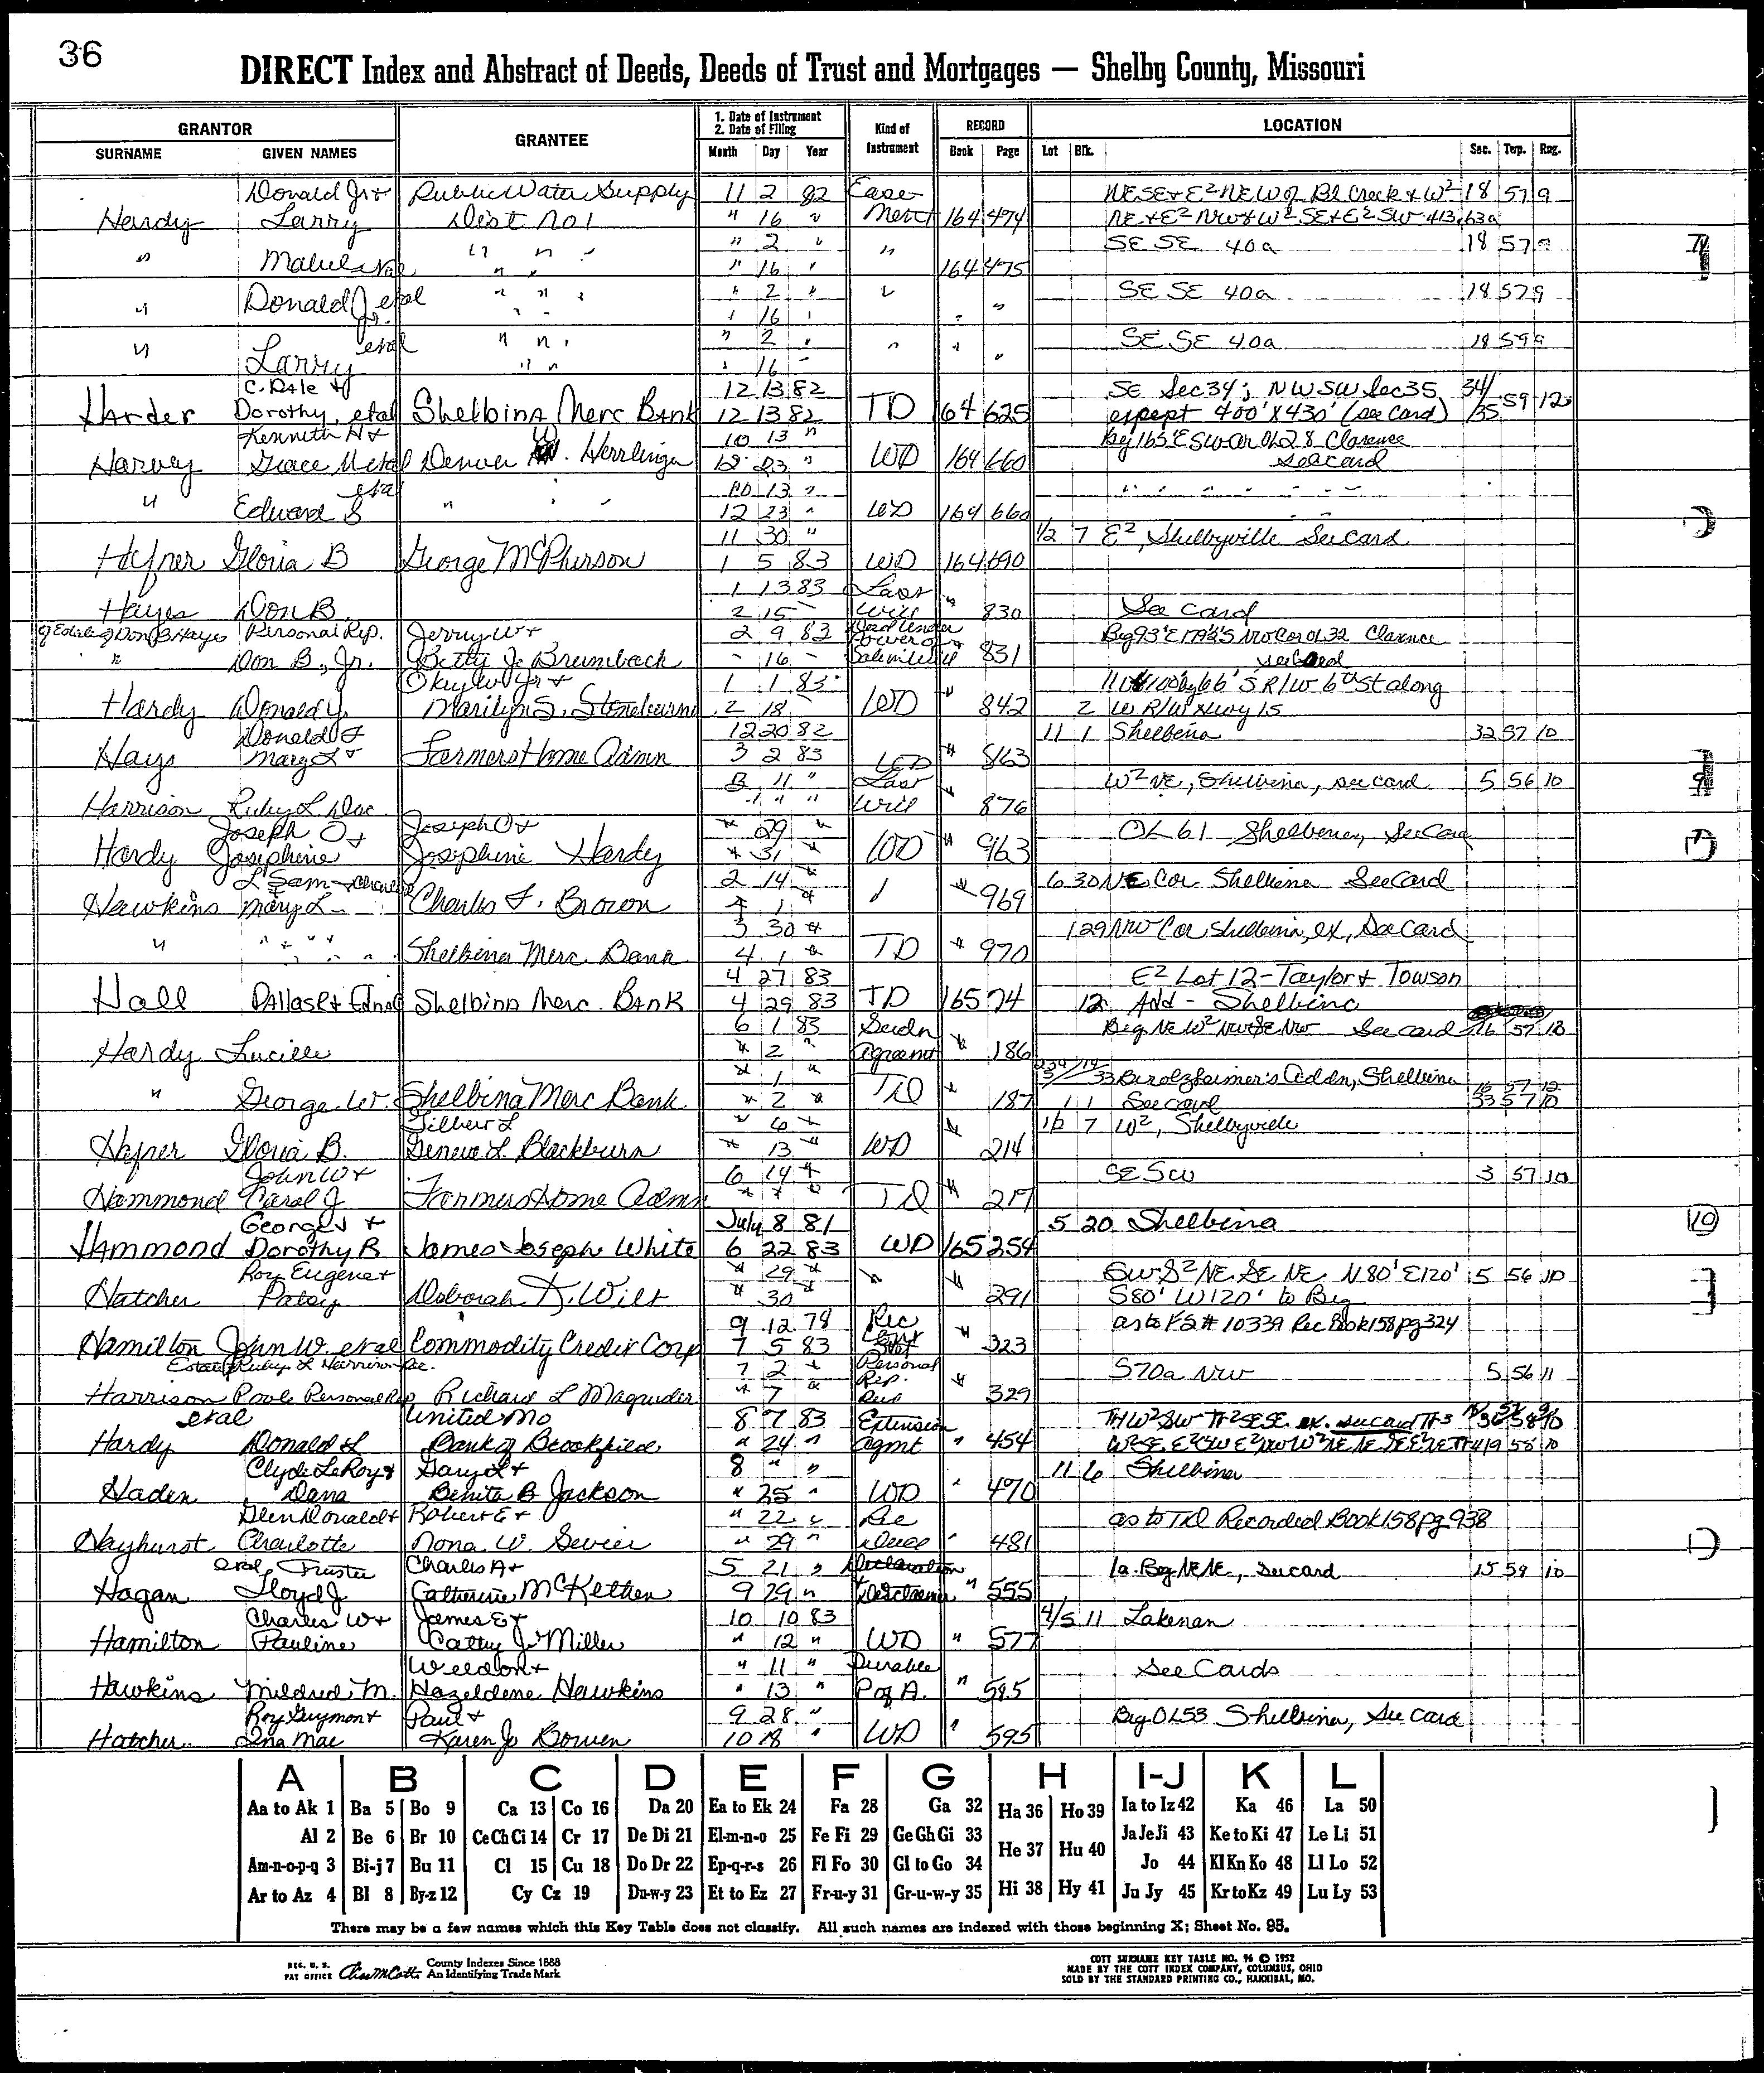 36
DIRECT Index and Abstract of Deeds, Deeds of Trust and Mortgages — Shelby County, Missouri
GRANTOR GRANTEE 1. Date of Instrument Kind of RECORD LOCATION
2. Date of Filing Instrument
SURNAME GIVEN NAMES Month Day Year Book Page Lot Blk. Sec. Twp. Rng.
Donald Jr & Public Water Supply 11 2 82 Ease- NESE & E² NE W of Bl Creek & W² 18 57 9
Hardy Larry Dist no 1 " 16 " ment 164 474 NE & E² NW & W² SE & E² SW 413.63a
" 2 " SE SE 40a 18 57 9
" Mabel " " " " 16 " " 164 475
" Donald J etal " " " " 2 " " SE SE 40a 18 57 9
Jr. " " " 16 " " "
" etal " " " " 2 " " " SE SE 40a 18 59 9
Larry " " " 16 "
C. Dale & 12 13 82 SE Sec 34; NWSW Sec 35 34/
Harder Dorothy, etal Shelbina Merc Bank 12 13 82 TD 164 625 except 400' X 430' (see card) /35 59 12
Kenneth H & 10 13 " Beg 165' E SW Cor OL 28 Clarence
Harvey Grace M etal Denver W. Herrlinger 12 23 " WD 164 660 see card
etal 10 13 " " " " " " "
" Edward S " " " 12 23 " WD 164 660 " "
11 30 " 1/2 7 E², Shelbyville See Card
Hafner Gloria B George McPherson 1 5 83 WD 164 690
1 13 83 Last
Hayes Don B. 2 15 " Will " 830 See Card
of Estate of Don B Hayes Personal Rep. Jerry W & 2 9 83 Deed Under Beg 93' E 179.2' S NW Cor OL 32 Clarence
" Don B., Jr. Betty J. Brumback " 16 " Power of Sale in Will " 831 see card
Okey W Jr & 1 1 83 66' S R/W 6th St along
Hardy Donald J. Marilyn S. Stoneburner 2 18 WD " 842 2 W R/W Hwy 15
Donald F 12 20 82 11 1 Shelbina 32 57 10
Hays Mary L & Farmers Home Admn 3 2 83 " 863
3 11 " Last W² NE, Shelbina, see card 5 56 10
Harrison Ruby L Doc " " " Will " 876
Joseph O & Joseph O & " 29 " OL 61 Shelbina, See Card
Hardy Josephine Josephine Hardy " 31 " WD " 963
L Sam & Charlie 2 14 " 6 30 NE Cor Shelbina See Card
Hawkins Mary L Charles F. Brown 4 1 " " 969
3 30 " 1 29 NW Cor Shelbina, ex, See Card
" " " " " Shelbina Merc. Bank 4 1 " TD " 970
4 27 83 E² Lot 12 - Taylor & Towson
Hall Dallas L & Edna Shelbina Merc. Bank 4 29 83 TD 165 74 12 Add - Shelbina
6 1 83 Beg NE W² NW & SE NW See card 16 57 10
Hardy Lucille " 2 " Agreemt " 186
" 1 " 33 Berolzheimer's Addn, Shelbina 16 57 12
" George W. Shelbina Merc Bank " 2 " TD " 187 1 1 See card 33 57 10
Gilbert L " 6 " 1/2 7 W², Shelbyville
Hafner Gloria B. Geneva L. Blackburn " 13 " WD " 214
John W & 6 14 " SE SW 3 57 10
Hammond Carol J Farmers Home Admn " " " TD " 217
George J & July 8 81 5 20 Shelbina
Hammond Dorothy R James Joseph White 6 22 83 WD 165 254
Roy Eugene & " 29 " " SW S² NE SE NE N 80' E 120' 5 56 10
Hatcher Patsy Deborah K. Wilt " 30 " " 291 S 80' W 120' to Beg
9 12 78 Rec as to FS# 10339 Rec Book 158 pg 324
Hamilton John W. etal Commodity Credit Corp 7 5 83 " 323
Estate of Ruby L Harrison Dec. 7 2 " Personal S 70a NW 5 56 11
Harrison Poole Personal Rep Richard L Magruder " 7 " Rep. " 329
etal United Mo 8 7 83 Extension
Hardy Donald L Bank of Brookfield " 24 " Agmt " 454
Clyde LeRoy & Gary L & 8 " " 11 6 Shelbina
Haden Dana Benita B Jackson " 25 " WD " 470
Glen Donald & Robert E & " 22 " Re as to TD Recorded Book 158 pg 938
Hayhurst Charlotte Nona W. Sevier " 29 " lease " 481
etal, Trustee Charles A & 5 21 " Declaration 1a. Beg NE NE, see card 15 59 10
Hagan Lloyd J Catherine McKethen 9 29 " " 555
Charles W & James E & 10 10 83 4/5 11 Lakenan
Hamilton Pauline Cathy J Miller " 12 " WD " 577
Weldon & " 11 " Durable See Cards
Hawkins Mildred M. Hazeldene Hawkins " 13 " P of A. " 585
Roy Guymon & Paul & 9 28 " Beg OL 53 Shelbina, See Card
Hatcher Ina Mae Karen Jo Bowen 10 18 " WD " 595
A B C D E F G H I-J K L
Aa to Ak 1 Ba 5 Bo 9 Ca 13 Co 16 Da 20 Ea to Ek 24 Fa 28 Ga 32 Ha 36 Ho 39 Ia to Iz 42 Ka 46 La 50
Al 2 Be 6 Br 10 Ce Ch Ci 14 Cr 17 De Di 21 El-m-n-o 25 Fe Fi 29 Ge Gh Gi 33 He 37 Hu 40 Ja Je Ji 43 Ke to Ki 47 Le Li 51
Am-n-o-p-q 3 Bi-j 7 Bu 11 Cl 15 Cu 18 Do Dr 22 Ep-q-r-s 26 Fl Fo 30 Gl to Go 34 Jo 44 Kl Kn Ko 48 Ll Lo 52
Ar to Az 4 Bl 8 By-z 12 Cy Cz 19 Du-w-y 23 Et to Ez 27 Fr-u-y 31 Gr-u-w-y 35 Hi 38 Hy 41 Ju Jy 45 Kr to Kz 49 Lu Ly 53
There may be a few names which this Key Table does not classify. All such names are indexed with those beginning X; Sheet No. 95.
REG. U. S. PAT OFFICE County Indexes Since 1888
An Identifying Trade Mark
COTT SURNAME KEY TABLE NO. 96 © 1952
MADE BY THE COTT INDEX COMPANY, COLUMBUS, OHIO
SOLD BY THE STANDARD PRINTING CO., HANNIBAL, MO.